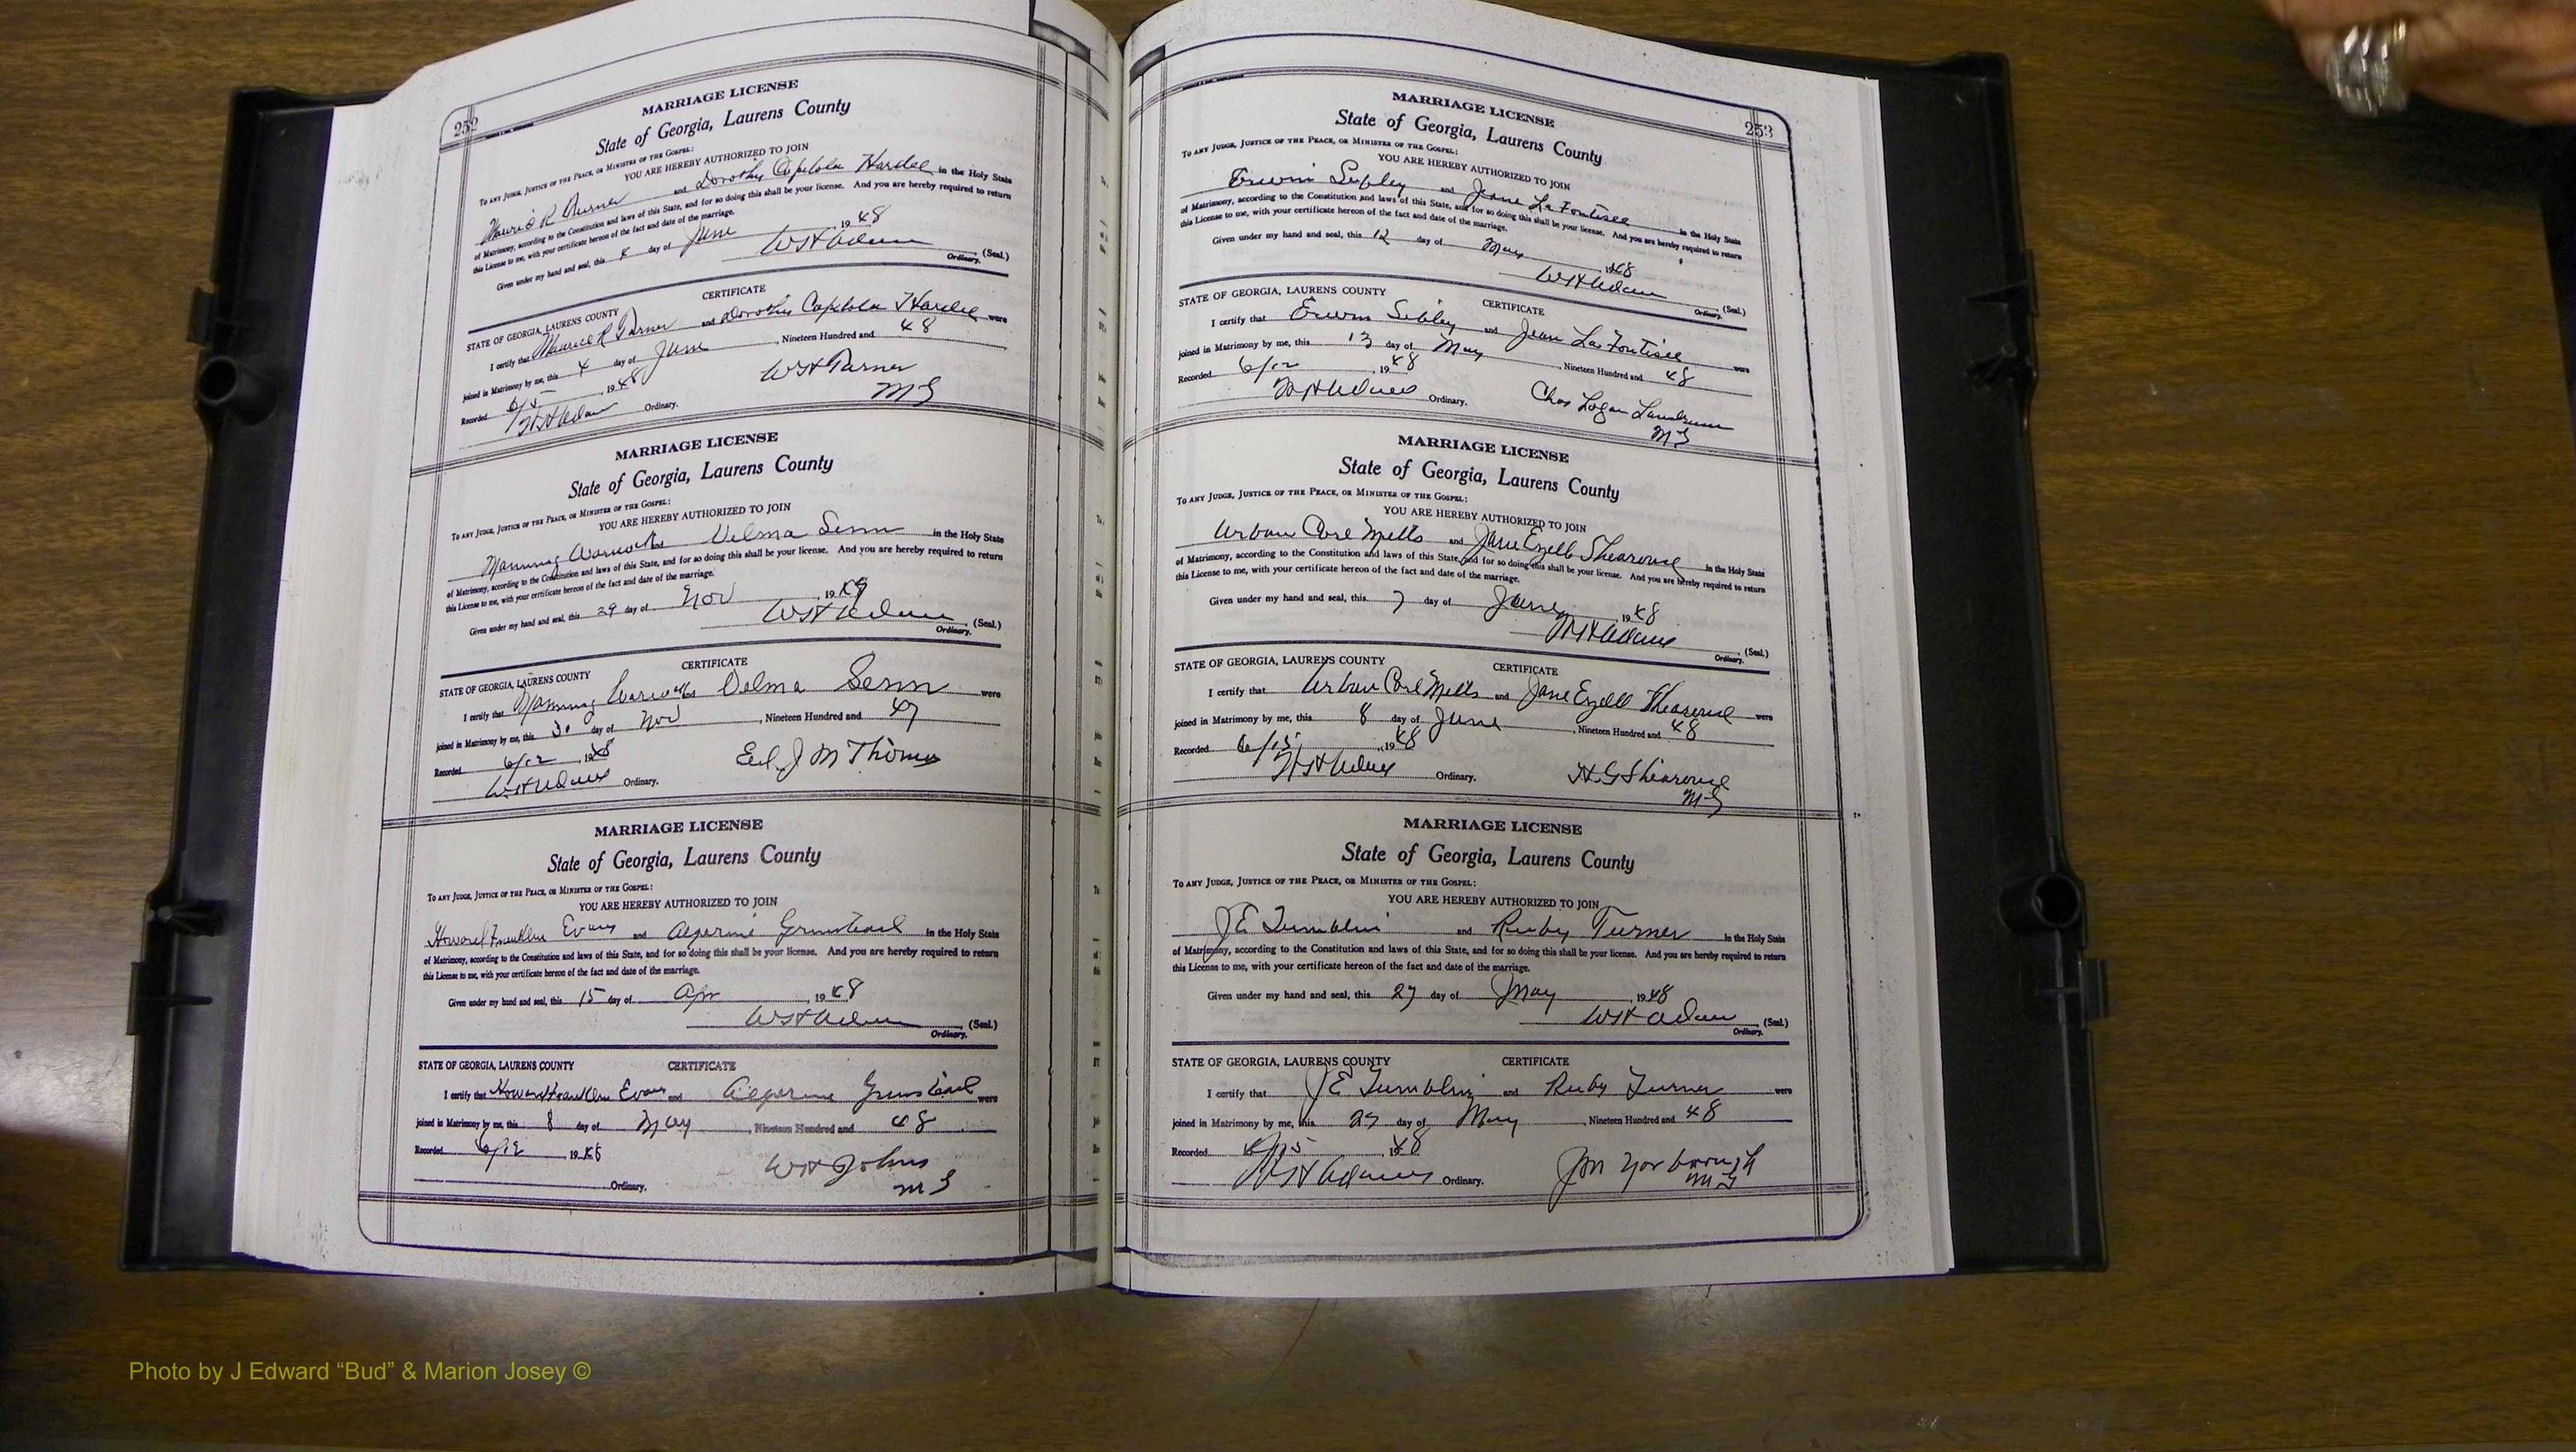 252
MARRIAGE LICENSE
State of Georgia, Laurens County
TO ANY JUDGE, JUSTICE OF THE PEACE, OR MINISTER OF THE GOSPEL:
YOU ARE HEREBY AUTHORIZED TO JOIN
R Turner and Dorothy Hardee in the Holy State
of Matrimony, according to the Constitution and laws of this State, and for so doing this shall be your license. And you are hereby required to return
this License to me, with your certificate hereon of the fact and date of the marriage.
Given under my hand and seal, this 4 day of June 1948
WH Adams (Seal.)
Ordinary.
CERTIFICATE
STATE OF GEORGIA, LAURENS COUNTY
I certify that Maurice R Turner and Dorothy Hardee were
joined in Matrimony by me, this 4 day of June, Nineteen Hundred and 48
Recorded 6/5, 1948 WH Turner
WH Adams Ordinary. MG
MARRIAGE LICENSE
State of Georgia, Laurens County
TO ANY JUDGE, JUSTICE OF THE PEACE, OR MINISTER OF THE GOSPEL:
YOU ARE HEREBY AUTHORIZED TO JOIN
Manning Delma Senn in the Holy State
of Matrimony, according to the Constitution and laws of this State, and for so doing this shall be your license. And you are hereby required to return
this License to me, with your certificate hereon of the fact and date of the marriage.
Given under my hand and seal, this 29 day of Nov, 1947
WH Adams (Seal.)
Ordinary.
CERTIFICATE
STATE OF GEORGIA, LAURENS COUNTY
I certify that Manning Delma Senn were
joined in Matrimony by me, this 30 day of Nov, Nineteen Hundred and 47
Recorded 6/12, 1948 J M Thomas
WH Adams Ordinary.
MARRIAGE LICENSE
State of Georgia, Laurens County
TO ANY JUDGE, JUSTICE OF THE PEACE, OR MINISTER OF THE GOSPEL:
YOU ARE HEREBY AUTHORIZED TO JOIN
Howard Franklin Evans and Algerine Grinstead in the Holy State
of Matrimony, according to the Constitution and laws of this State, and for so doing this shall be your license. And you are hereby required to return
this License to me, with your certificate hereon of the fact and date of the marriage.
Given under my hand and seal, this 15 day of Apr, 1948
WH Adams (Seal.)
Ordinary.
STATE OF GEORGIA, LAURENS COUNTY CERTIFICATE
I certify that Howard Franklin Evans and Algerine Grinstead were
joined in Matrimony by me, this 8 day of May, Nineteen Hundred and 48
Recorded 6/12, 1948 WH Johns
Ordinary. MG
253
MARRIAGE LICENSE
State of Georgia, Laurens County
TO ANY JUDGE, JUSTICE OF THE PEACE, OR MINISTER OF THE GOSPEL:
YOU ARE HEREBY AUTHORIZED TO JOIN
Erwin Sibley and Jean La Fontisee in the Holy State
of Matrimony, according to the Constitution and laws of this State, and for so doing this shall be your license. And you are hereby required to return
this License to me, with your certificate hereon of the fact and date of the marriage.
Given under my hand and seal, this 12 day of May, 1948
WH Adams (Seal.)
Ordinary.
STATE OF GEORGIA, LAURENS COUNTY CERTIFICATE
I certify that Erwin Sibley and Jean La Fontisee were
joined in Matrimony by me, this 13 day of May, Nineteen Hundred and 48
Recorded 6/12, 1948
WH Adams Ordinary. Chas Logan Landrum
MG
MARRIAGE LICENSE
State of Georgia, Laurens County
TO ANY JUDGE, JUSTICE OF THE PEACE, OR MINISTER OF THE GOSPEL:
YOU ARE HEREBY AUTHORIZED TO JOIN
Urban Carl Mills and Jane Ezell Shearouse in the Holy State
of Matrimony, according to the Constitution and laws of this State, and for so doing this shall be your license. And you are hereby required to return
this License to me, with your certificate hereon of the fact and date of the marriage.
Given under my hand and seal, this 7 day of June, 1948
WH Adams (Seal.)
Ordinary.
STATE OF GEORGIA, LAURENS COUNTY CERTIFICATE
I certify that Urban Carl Mills and Jane Ezell Shearouse were
joined in Matrimony by me, this 8 day of June, Nineteen Hundred and 48
Recorded 6/15, 1948
WH Adams Ordinary. HG Shearouse
MG
MARRIAGE LICENSE
State of Georgia, Laurens County
TO ANY JUDGE, JUSTICE OF THE PEACE, OR MINISTER OF THE GOSPEL:
YOU ARE HEREBY AUTHORIZED TO JOIN
J E Tumblin and Ruby Turner in the Holy State
of Matrimony, according to the Constitution and laws of this State, and for so doing this shall be your license. And you are hereby required to return
this License to me, with your certificate hereon of the fact and date of the marriage.
Given under my hand and seal, this 27 day of May, 1948
WH Adams (Seal.)
Ordinary.
STATE OF GEORGIA, LAURENS COUNTY CERTIFICATE
I certify that J E Tumblin and Ruby Turner were
joined in Matrimony by me, this 27 day of May, Nineteen Hundred and 48
Recorded 6/15, 1948
WH Adams Ordinary. Yarborough
MG
Photo by J Edward “Bud” & Marion Josey ©